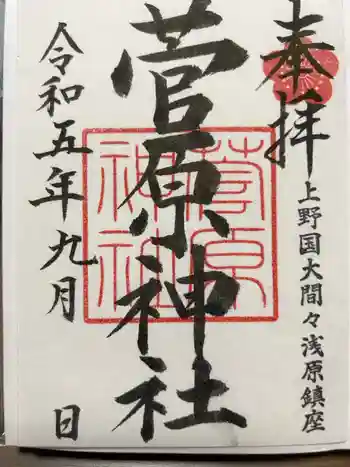 奉拝
上野国大間々浅原鎮座
菅原神社
菅原神社
令和五年九月 日